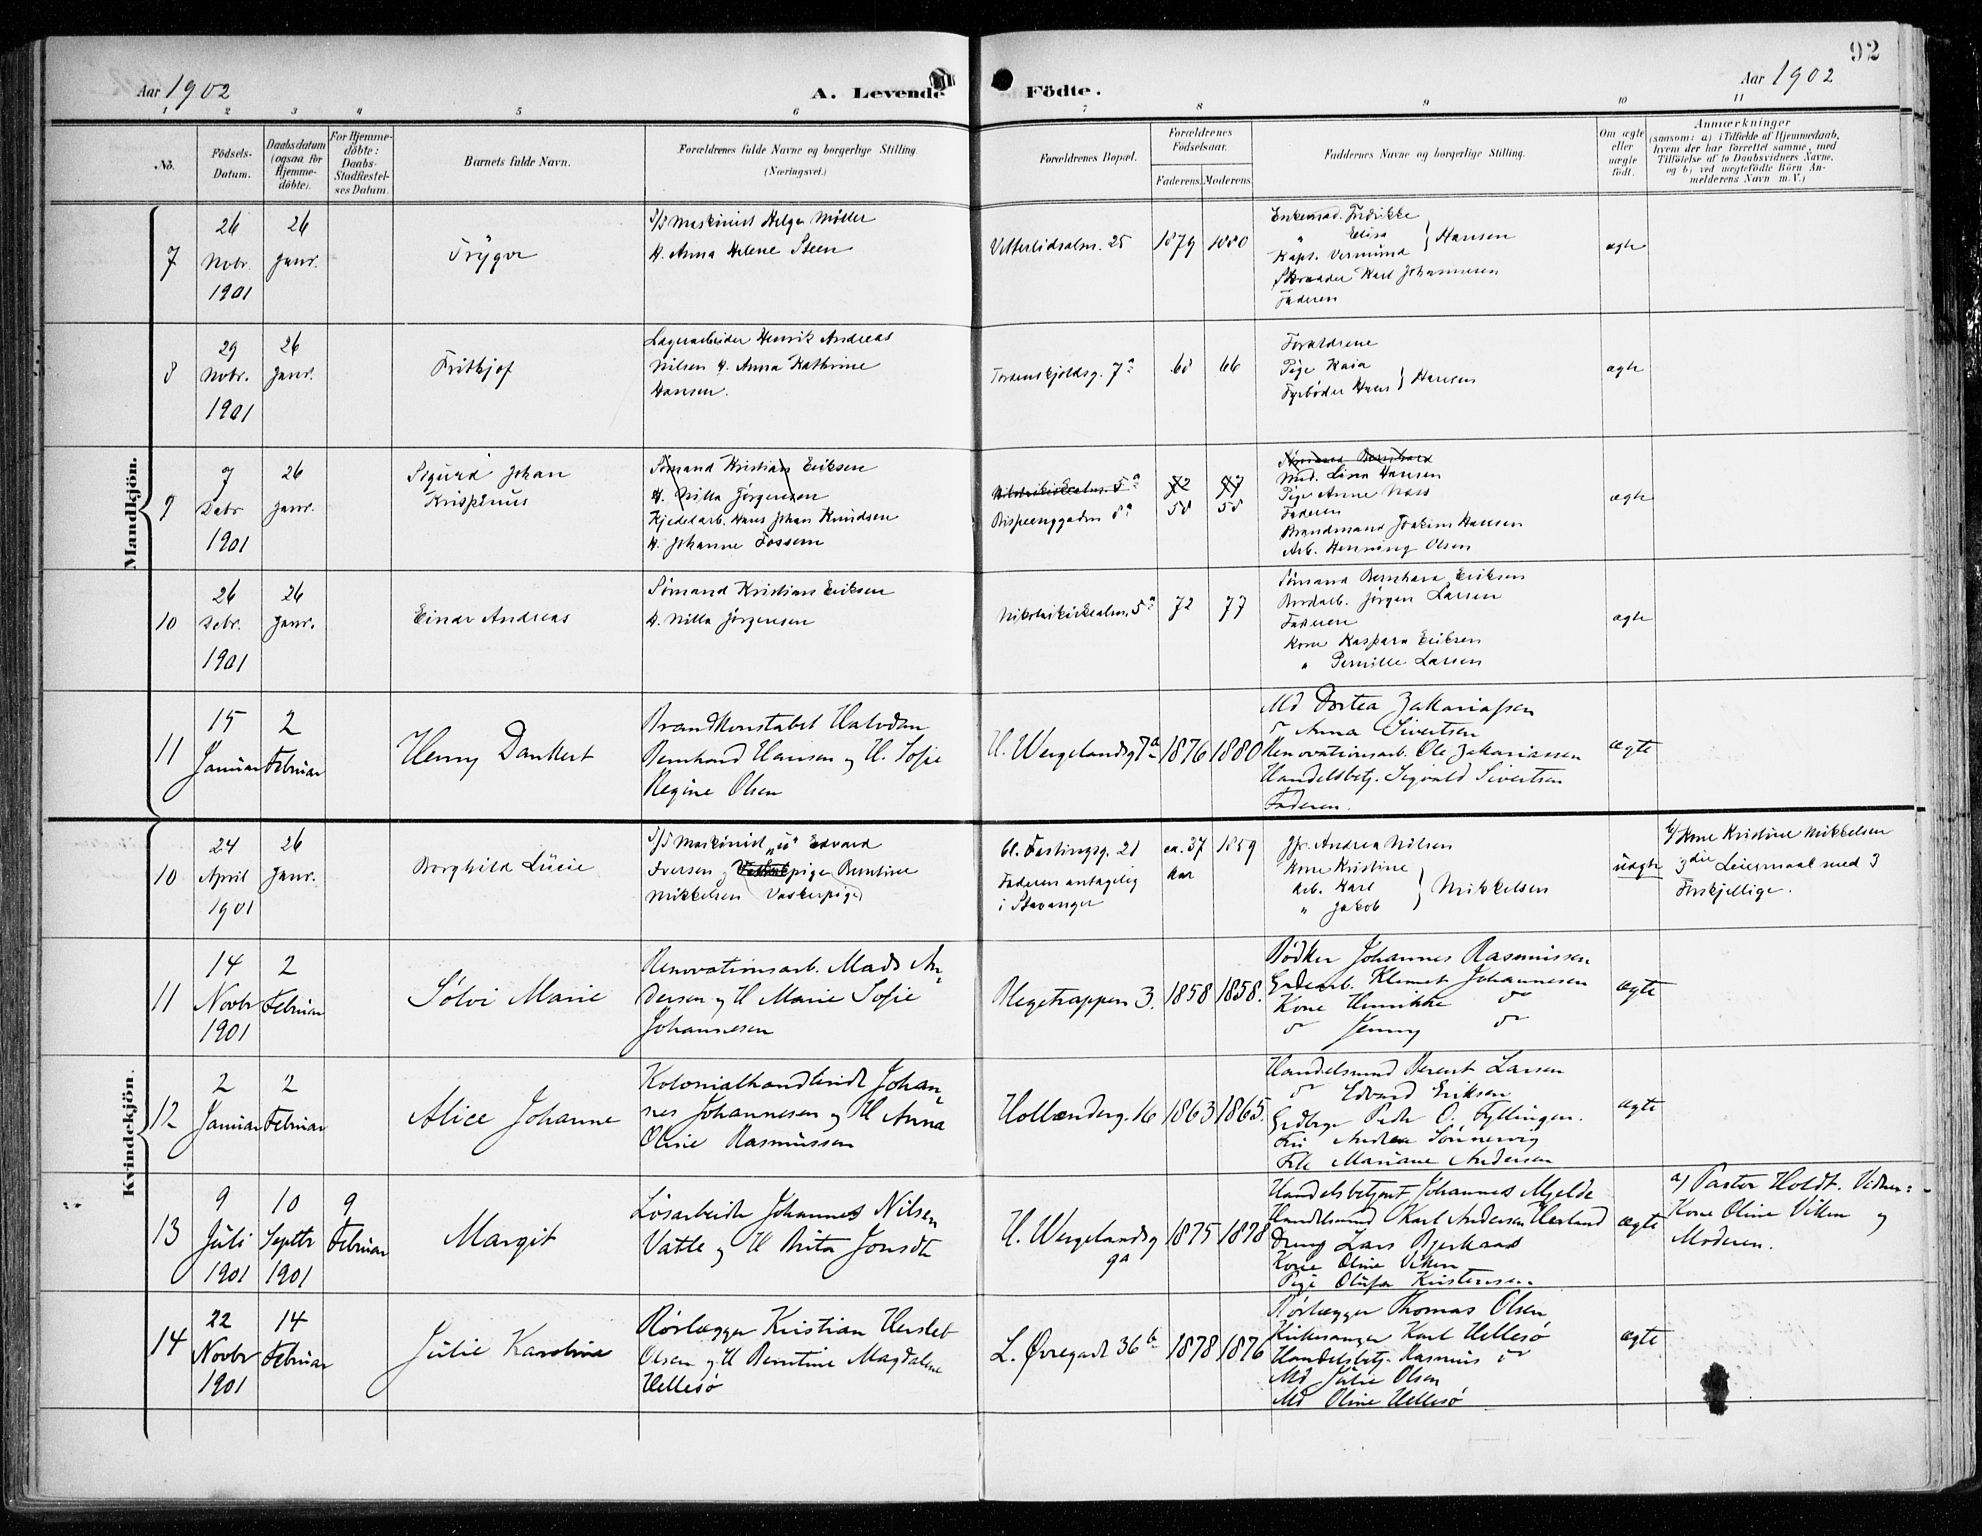 92
Aar 1902
A. Levende Födte.
Aar 1902
1 2 3 4 5 6 7 8 9 10 11
No.
Födsels-Datum.
Daabsdatum (ogsaa for Hjemme-döbte).
For Hjemme-döbte: Daabs-Stadfæstel-ses Datum.
Barnets fulde Navn.
Forældrenes fulde Navne og borgerlige Stilling. (Næringsvei.)
Forældrenes Bopæl.
Forældrenes Födselsaar.
Faderens.
Moderens.
Faddernes Navne og borgerlige Stilling.
Om ægte eller uægte födt.
Anmærkninger
(saasom: a) i Tilfælde af Hjemmedaab, hvem der har forrettet samme, med Tilföielse af to Daabsvidners Navne, og b) ved uægtefödte Börn An-melderens Navn m. V.)
Mandkjön.
7
26 Nobr. 1901
26 Janr.
Trygve
D/S Maskinist Helge Møller
H. Anna Helene Steen
Vetterlidsalm. 25
1879
1880
Enkemad. Fredrikke
" Elisa
Kapt. Vermund } Hansen
Skrædder Karl Johannesen
Faderen
ægte
8
29 Nobr. 1901
26 Janr.
Fritjof
Lagerarbeider Henrik Andreas
Nilsen H. Anna Kathrine
Hansen.
Tordenskjoldsg. 7a
68
66
Forældrene
Pige Kaia
Fyrbøder Hans } Hansen
ægte
9
7 Debr 1901
26 Janr.
Sigurd Johan
Krispinus
Sømand Kristian Eriksen
H. Nilla Jørgensen
Kjedelarb. Hans Johan Knudsen
H. Johanne Fossem
Nikolaikirkealm. 5a
Bispeenggaden 8a
72
58
77
58
Sømand Bernhard
Md. Lina Hansen
Pige Anne Næss
Faderen
Brandmand Joakim Hansen
Arb. Henning Olsen
ægte
10
26 Debr. 1901
26 Janr.
Einar Andreas
Sømand Kristian Eriksen
H. Nilla Jørgensen
Nikolaikirkealm. 5a
72
77
Sømand Bernhard Eriksen
Bordarb. Jørgen Larsen
Faderen
Kone Kaspara Eriksen
" Pernille Larsen
ægte
11
15 Januar
2 Februar
Henry Dankert
Brandkonstabel Halvdan
Bernhard Hansen og H. Sofie
Regine Olsen
H. Wergelandsg 7a
1876
1880
Md Dortea Zakariassen
do Anna Sivertsen
Renovationsarb. Ole Zakariassen
Handelsbetj. Sigvald Sivertsen
Faderen.
ægte
Kvindekjön.
10
24 April 1901
26 Janr.
Borghild Lucie
D/S Maskinist Edvard
Iversen og pige Berntine
Mikkelsen (Vaskerpige)
Cl. Fastingsg. 21
Faderen antagelig
i Stavanger
ca. 37 Aar
1859
Jfr. Andrea Nilsen
Kone Kristine
Arb. Karl
" Jakob } Mikkelsen
uægte
b/ Kone Kristine Mikkelsen
3die Leiermaal med 3
Forskjellige.
11
14 Novbr 1901
2 Februar
Sølvi Marie
Renovationsarb. Mads An-
dersen og H Marie Sofie
Johannesen
Hegetrappen 3.
1858
1858.
Bødker Johannes Rasmussen
Klemet Johannesen
Kone Henrikke do
do Jenny do
ægte
12
2 Januar
2 Februar
Alice Johanne
Kolonialhandlende Johan-
nes Johannesen og H Anna
Oline Rasmussen
Hollænderg. 16
1863
1865.
Handelsmand Berent Larsen
do Edvard Eriksen
Peder O. Fyllingen.
Fru Andrea Sönnervig
Frk Mariane Andersen
ægte
13
9 Juli 1901
10 Septbr 1901
9 Februar
Margit
Løsarbeider Johannes Nilsen
Vatle og H Brita Jonsdtr
H. Wergelandsg 9a
1875
1878
Handelsbetjent Johannes Mjelde
Handelsmand Karl Andersen Herland
Dreng Lars Bjerkaas
Kone Oline Vikken
Pige Olufa Kristensen
ægte
a) Pastor Holdt. Vidner:
Kone Oline Vikken og
Moderen.
14
22 Novbr 1901
14 Februar
Julie Karoline
Rørlægger Kristian Herslet
Olsen og H Berntine Magdalene
Hellesø
L. Øvregade 36b
1878
1876
Rørlægger Thomas Olsen
Kirkesanger Karl Hellesø
Handelsbetj. Rasmus do
Md Julie Olsen
Md Oline Hellesø
ægte